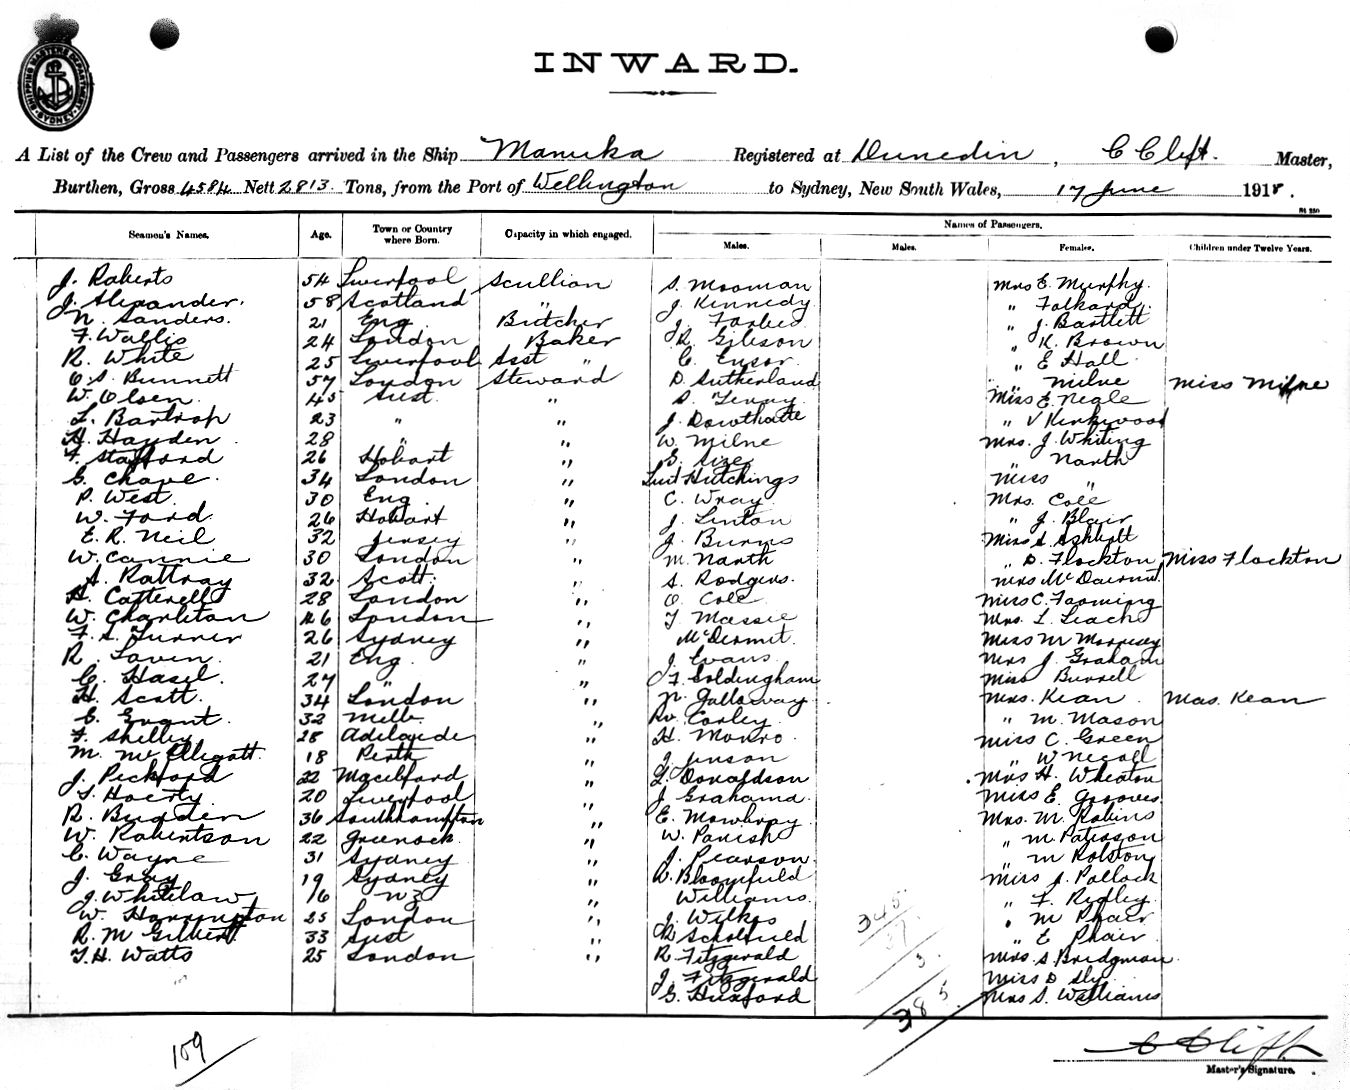 SHIPPING MASTERS DEPARTMENT SYDNEY
INWARD.
A List of the Crew and Passengers arrived in the Ship Manuka Registered at Dunedin, C Clift. Master,
Burthen, Gross 4584 Nett 2813. Tons, from the Port of Wellington to Sydney, New South Wales, 17 June 1918.
Names of Passengers.
Seamen's Names. Age. Town or Country where Born. Capacity in which engaged. Males. Males. Females. Children under Twelve Years.
J. Roberts 54 Liverpool Scullion S. Mooman Mrs E. Murphy.
J. Alexander. 58 Scotland " J. Kennedy " Folkard.
N. Sanders. 21 Eng Butcher J. Forbes " J. Bartlett
F. Wallis 24 London Baker R. Gibson " K. Brown
R. White 25 Liverpool Asst " C. Ensor " E Hall
C. S. Bunnett 57 London Steward D. Sutherland " Milne Miss Milne
W. Olsen 45 Aust. " Miss E. Neale
L. Bartrop 23 " " J. Dowthatte " V Kirkwood
H. Hayden 28 " " W. Milne Mrs. J. Whiting
F. Stafford 26 Hobart " G. Size " North
G. Chave. 34 London " Lieut Hutchings Miss "
P. West. 30 Eng. " C. Wray Mrs. Cole
W. Ford. 26 Hobart " J. Linton " J. Blair
E. R. Neil 32 Jersey " J. Burns Miss S. Ashlett
W. Cannie 30 London " M. North " D. Flockton Miss Flockton
A. Rattray 32 Scott. " S. Rodgers. Mrs McDairmit.
H. Catterell 28 London " O. Cole Miss C. Fooming
W. Charleton 46 London " T Massie Mrs. L. Leach
F. S. Turner 26 Sydney " McDermit. Miss M Morrisey
R. Lavin 21 Eng. " J. Evans. Mrs J. Graham
C. Hasel. 27 " " F. Goldingham Miss Burrell
H. Scott. 34 London " N. Galloway Mrs. Kean Mas. Kean
E. Grant. 32 Melb. " Corley " M. Mason
F. Shelley 28 Adelaide " H. Monro. Miss C. Green
M. McElligott. 18 Perth " J. Jinson " W Negall
J. Peckford 22 " G. Donaldson Mrs H. Wheaton
Hoerty. 20 Liverpool " J. Grahama. Miss E. Grooves.
R. Bugden 36 Southhampton " E. Mowbray Mrs. M. Robins
W. Robertson 22 Greenock " W. Panish " M Paterson
C. Wayne 31 Sydney " J. Pearson. " M Rolston
J. Gray 19 Sydney " Bloomfield Miss J. Pollock
J. Whitelaw 16 NZ " Williams. " F. Ridley
W. Harrington 25 London " J. Wilkes " M Phair
R. M Gilbert 33 Aust " Scholfield " E Phair
T. H. Watts 25 London " R. Fitzgerald Mrs S. Bridgman
J. Fitzgerald Miss D Sly.
G. Huxford Mrs S. Williams
345
37
3.
385
109
C Clift
Master's Signature.